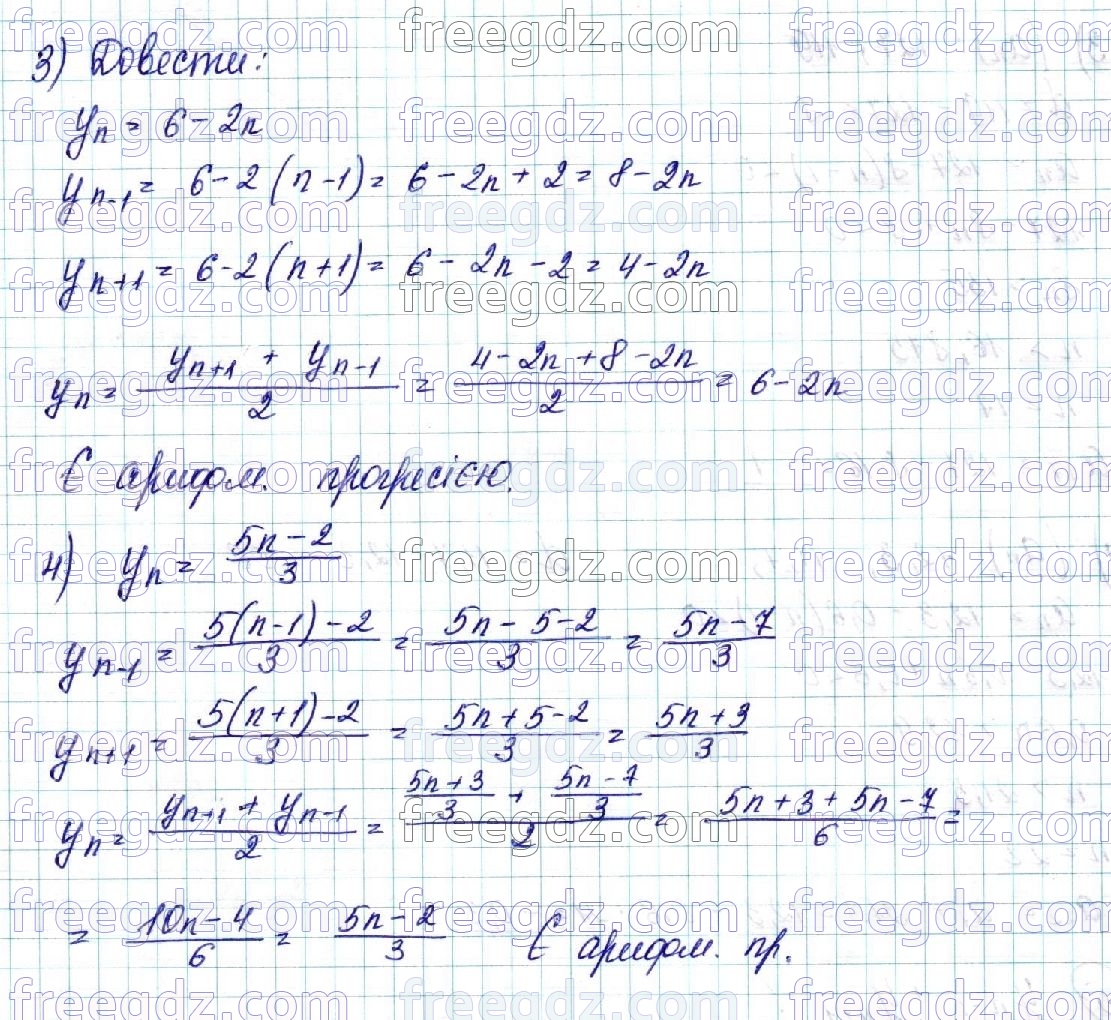 3) Довести:
yₙ = 6 - 2n
yₙ₋₁ = 6 - 2(n - 1) = 6 - 2n + 2 = 8 - 2n
yₙ₊₁ = 6 - 2(n + 1) = 6 - 2n - 2 = 4 - 2n
yₙ = (yₙ₊₁ + yₙ₋₁)/2 = (4 - 2n + 8 - 2n)/2 = 6 - 2n
Є аридом. прогресією.
4) yₙ = (5n - 2)/3
yₙ₋₁ = (5(n-1) - 2)/3 = (5n - 5 - 2)/3 = (5n - 7)/3
yₙ₊₁ = (5(n+1) - 2)/3 = (5n + 5 - 2)/3 = (5n + 3)/3
yₙ = (yₙ₊₁ + yₙ₋₁)/2 = ((5n + 3)/3 + (5n - 7)/3)/2 = (5n + 3 + 5n - 7)/6 =
= (10n - 4)/6 = (5n - 2)/3 Є аридом. пр.
freegdz.com